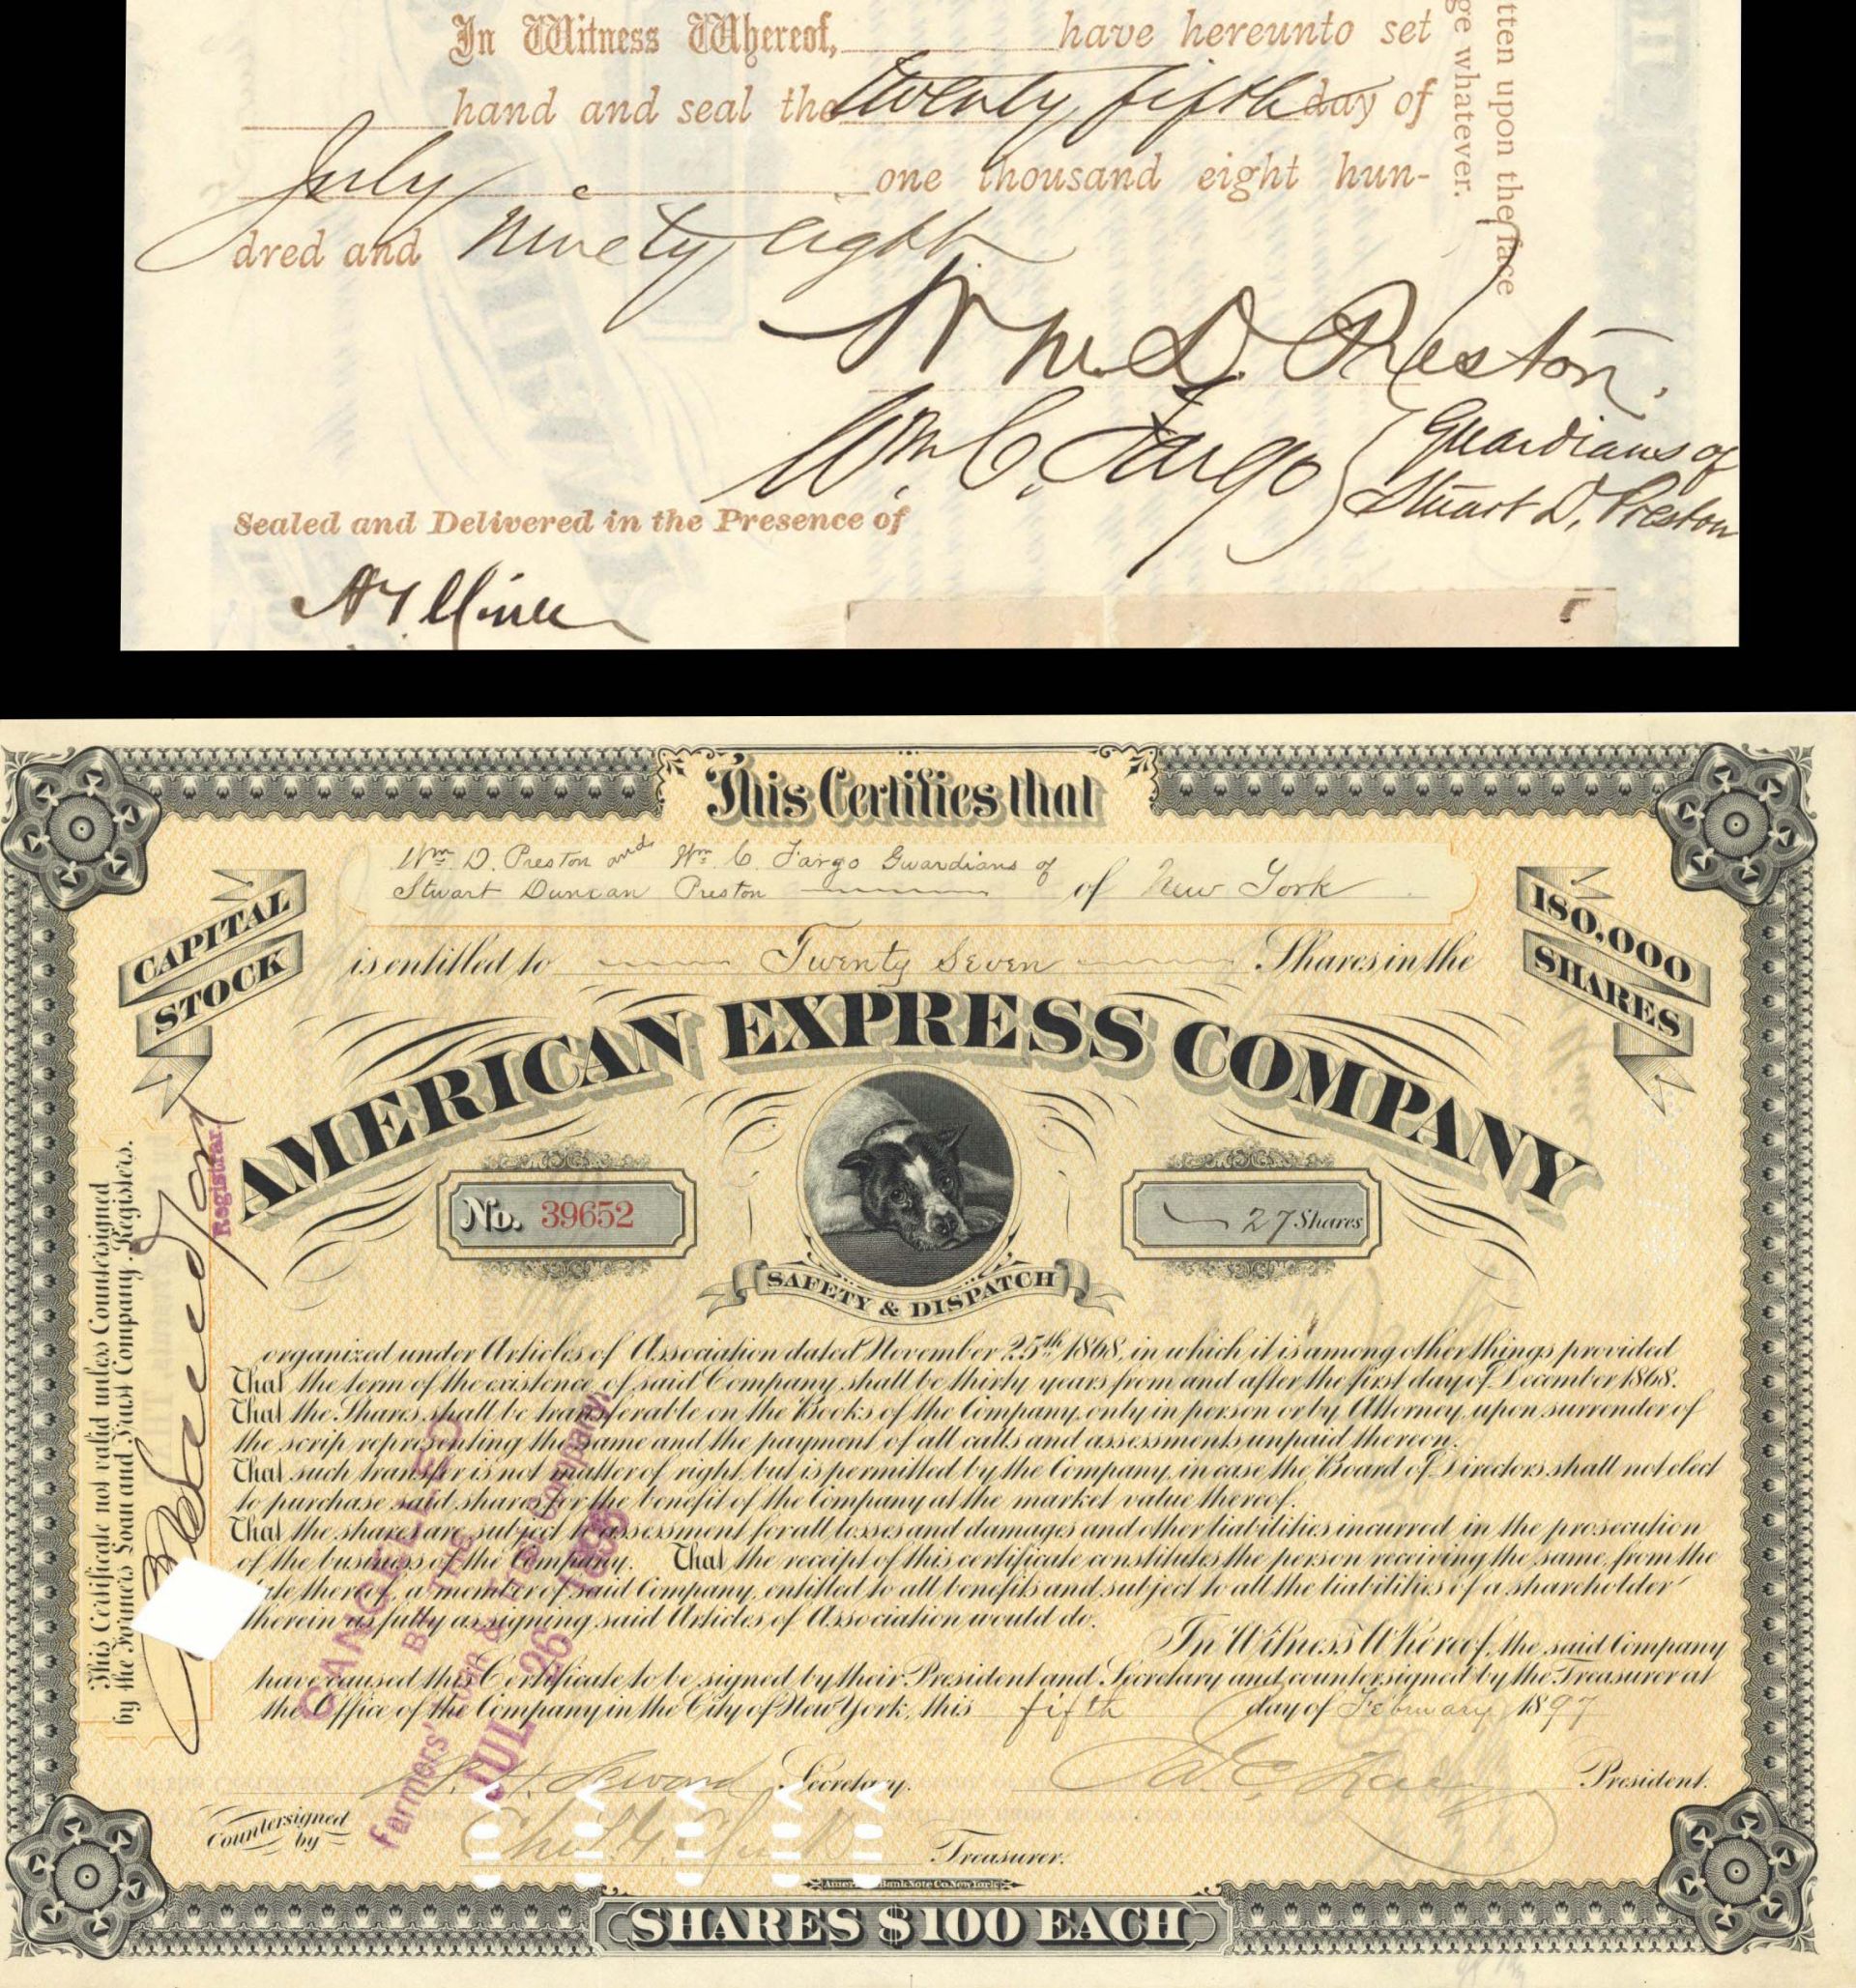 In Witness Whereof, have hereunto set
hand and seal the twenty fifth day of
July one thousand eight hun-
dred and ninety eight
Wm. D. Preston.
Wm. C. Fargo } Guardians of
Stuart D. Preston
Sealed and Delivered in the Presence of
tten upon the face
ge whatever.
This Certifies that
Wm D. Preston and Wm C. Fargo Guardians of
Stuart Duncan Preston of New York
is entitled to Twenty Seven Shares in the
CAPITAL
STOCK
180,000
SHARES
AMERICAN EXPRESS COMPANY
No. 39652
27 Shares
SAFETY & DISPATCH
organized under Articles of Association dated November 25th 1868, in which it is among other things provided
That the term of the existence of said Company shall be thirty years from and after the first day of December 1868.
That the Shares shall be transferable on the Books of the Company, only in person or by Attorney, upon surrender of
the scrip representing the same and the payment of all calls and assessments unpaid thereon.
That such transfer is not matter of right, but is permitted by the Company, in case the Board of Directors shall not elect
to purchase said shares for the benefit of the Company at the market value thereof.
That the shares are subject to assessment for all losses and damages and other liabilities incurred in the prosecution
of the business of the Company. That the receipt of this certificate constitutes the person receiving the same, from the
thereof, a member of said Company, entitled to all benefits and subject to all the liabilities of a shareholder
therein as fully as signing said Articles of Association would do.
In Witness Whereof, the said Company
have caused this Certificate to be signed by their President and Secretary and countersigned by the Treasurer at
the Office of the Company in the City of New York, this fifth day of February 1897
Secretary.
President.
Countersigned
by
Treasurer.
American Bank Note Co. New York
SHARES $100 EACH
This Certificate not valid unless Countersigned
by the Farmers Loan and Trust Company, Registers.
Registrar.
CANCELLED
BY THE
Farmers' Loan & Trust Company
JUL 26 1898